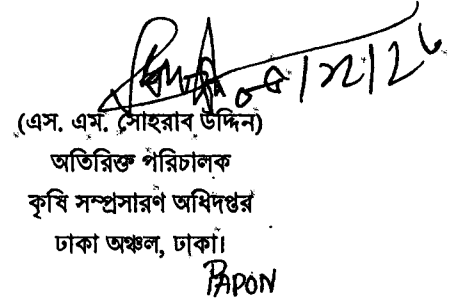 ০৪/১২/২৮
(এস. এম. সোহরাব উদ্দিন)
অতিরিক্ত পরিচালক
কৃষি সম্প্রসারণ অধিদপ্তর
ঢাকা অঞ্চল, ঢাকা।
PAPON